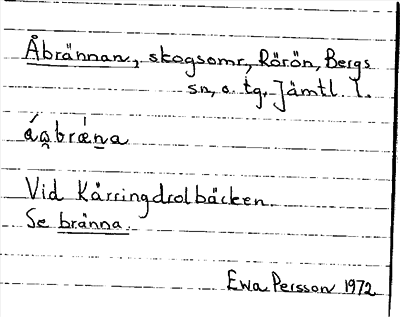 Åbrännan, skogsomr, Rörön, Bergs
sn, o. tg, Jämtl. l.
áa̯bræ̀na
Vid Kårringdrolbäcken.
Se bränna.
Ewa Persson 1972